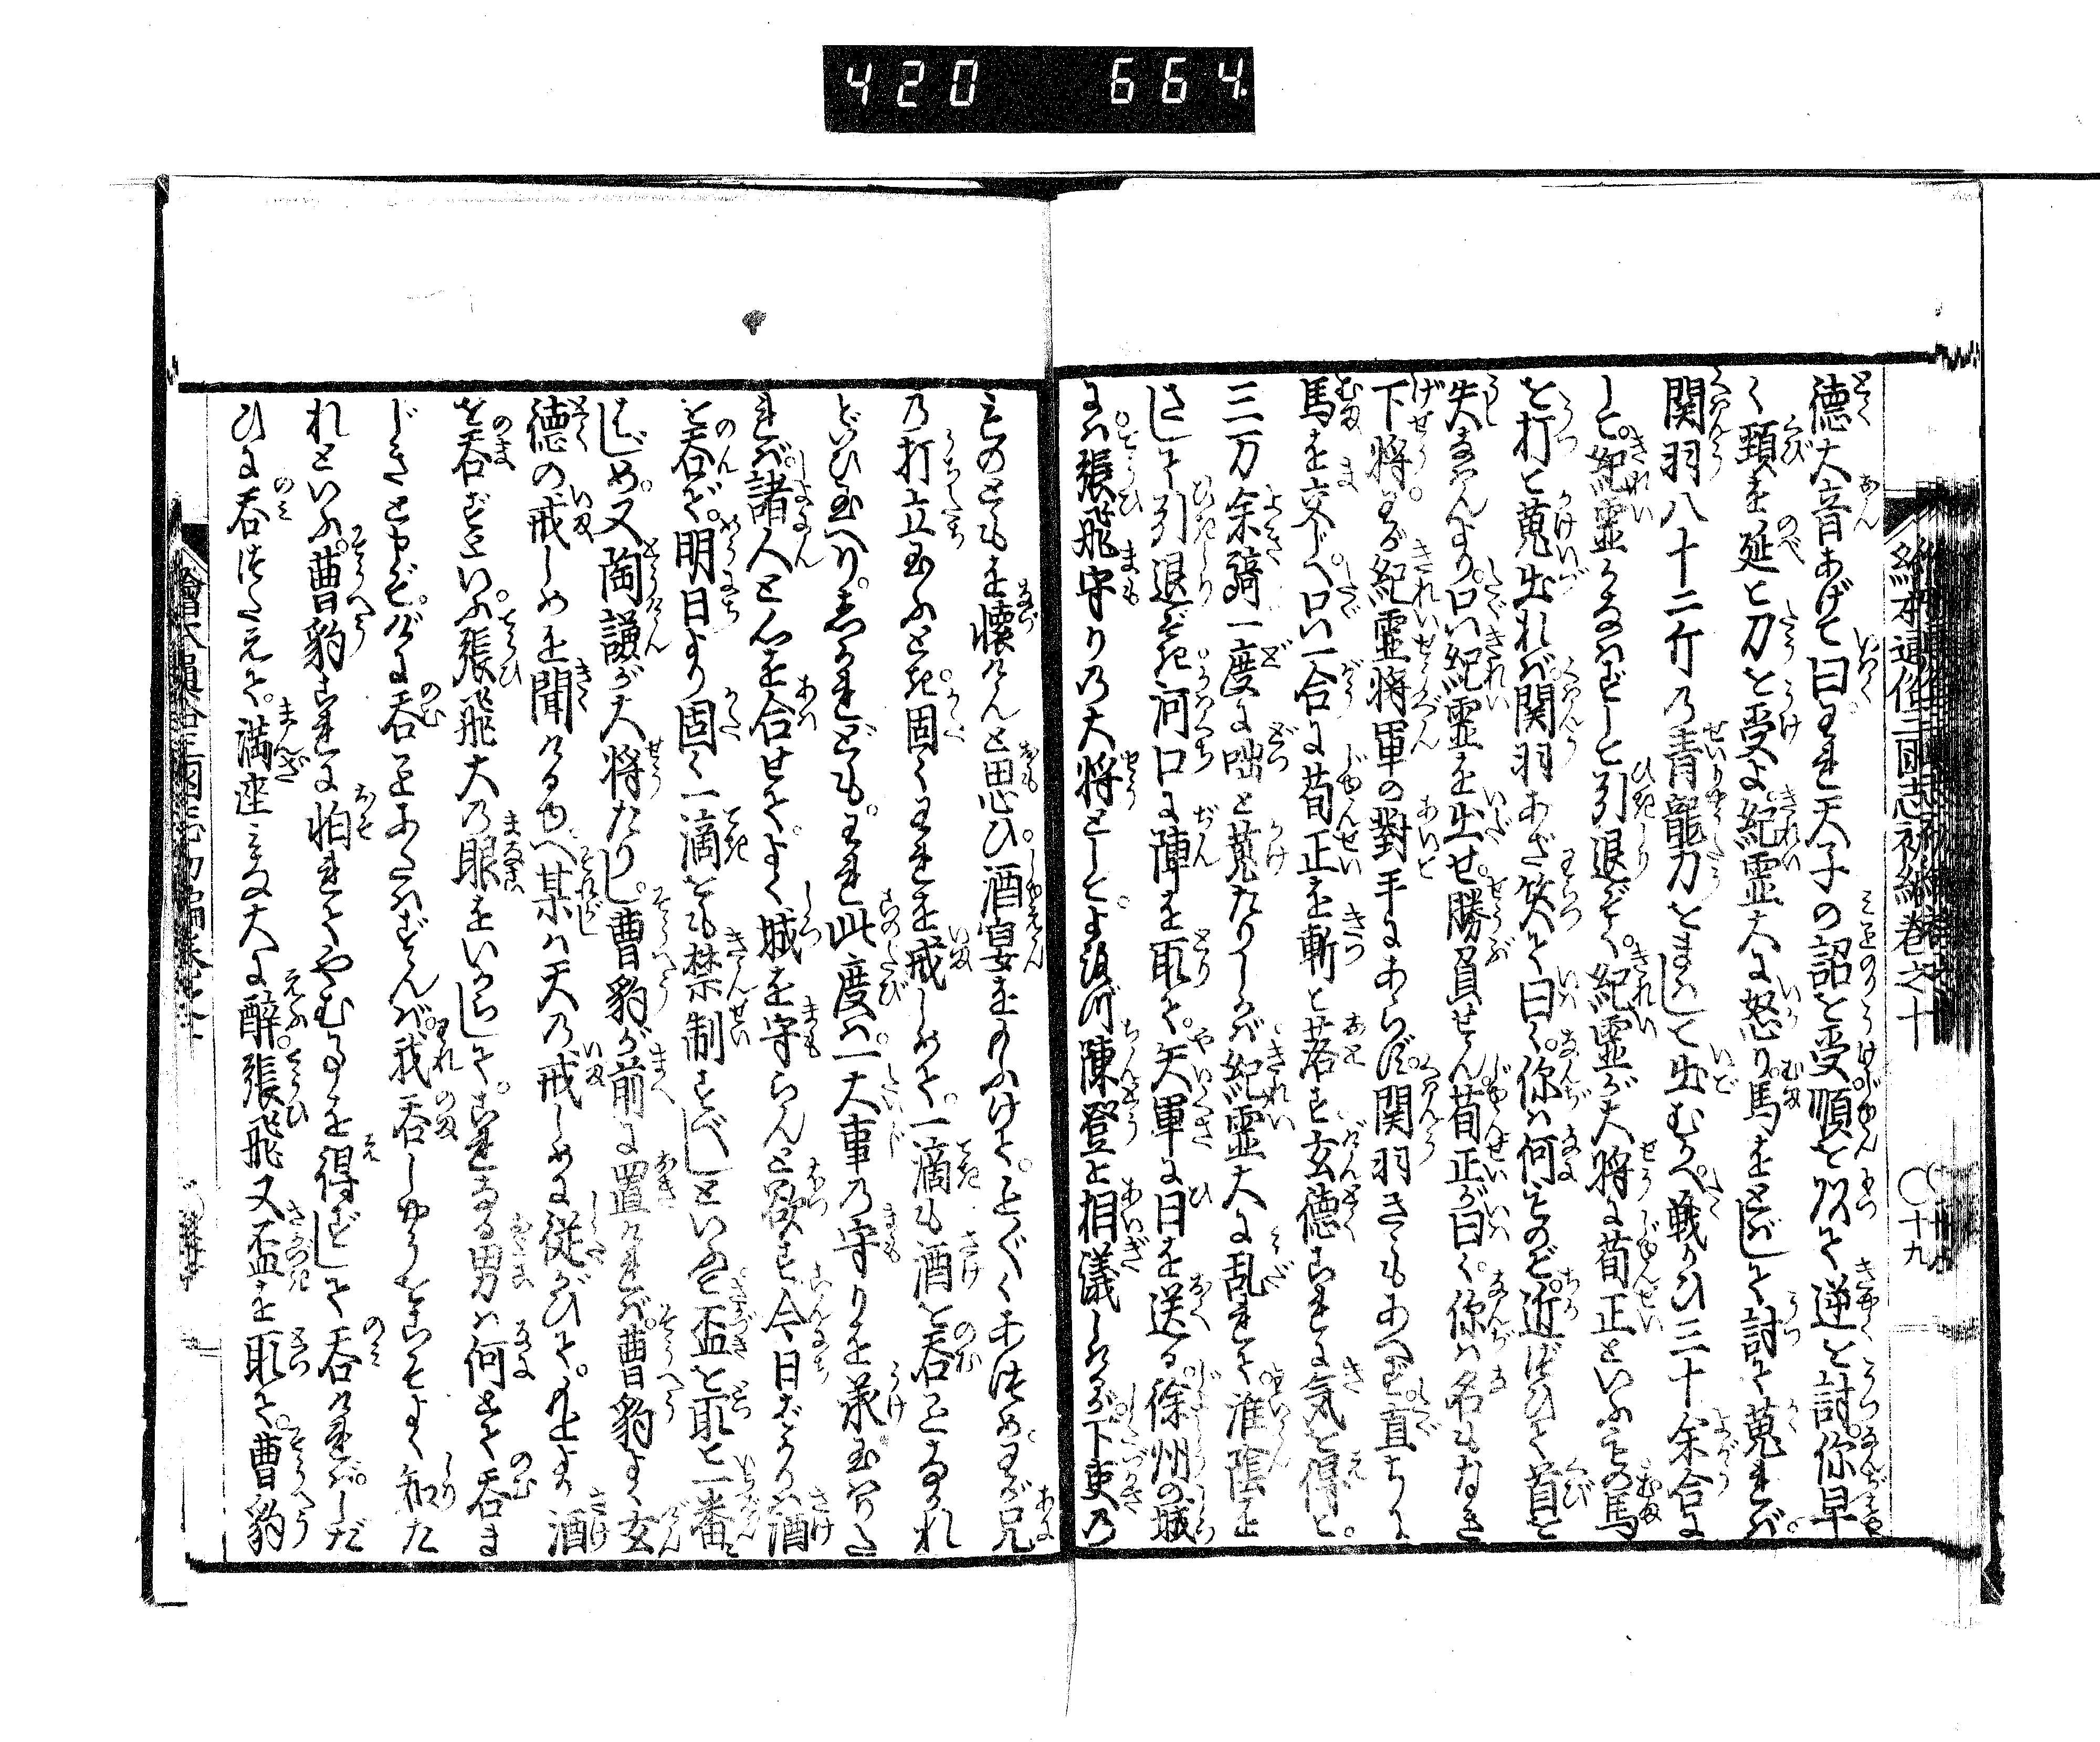 420 664
繪本通俗三國志初編卷之十 〇十九
徳大音あげて曰。われ天子の詔を受順を以て逆を討。你早
く頸を延て刀を受よ紀霊大に怒り馬をとばして討て蒐れば。
関羽八十二斤の青龍刀をまはして出むかへ。戦かひ三十余合に
して。紀霊かなはずして引退ぞく。紀霊が大将に荀正といふもの馬
を打て蒐出れば関羽あざ笑て曰く。你は何ものぞ。近づひて首を
失なはんより。只紀霊を出せ。勝負せん荀正が曰く。你は名もなき
下将。わが紀霊将軍の對手にあらず。関羽きゝもあへず。直ちに
馬を交じへ。只一合に荀正を斬て落す。玄徳これに気を得て。
三万余騎一度に咄と蒐たりしかば。紀霊大に乱れて。淮陰
さして引退ぞき。河口に陣を取て。矢軍に日を送る。徐州の城
には。張飛守りの大将として。よろづ陳登と相儀しけるが。下吏の
ものどもを懐けんと思ひ。酒宴をまふけて。ことごとくあつめ。わが兄
の打立玉ふとき。固くわれを戒しめて。一滴も酒を呑ことなかれ
といひ玉へり。しかれども。われ此度は。一大事の守りを承玉はりた
れば。諸人と心を合せて。よく城を守らんと欲す。今日ばかりは酒
を呑で。明日より固く一滴をも禁制すべしといふて。盃を取て一番に
はじめ。又陶謙が大将たりし。曹豹が前に置ければ。曹豹よく玄
徳の戒しめを聞けるゆへ。某は天の戒しめに従がひて。むかしより酒
を呑ずといふ。張飛大の眼をいからして。これなる男は何とて呑ま
じきと申ぞ。ぜひに呑ことあたはずんば。我呑しやうをおしへてよく知た
れといふ。曹豹これに怕れて。やむことを得ずして呑ければ。しだ
ひに呑つたえて。満座みな大に醉。張飛又盃を取て。曹豹